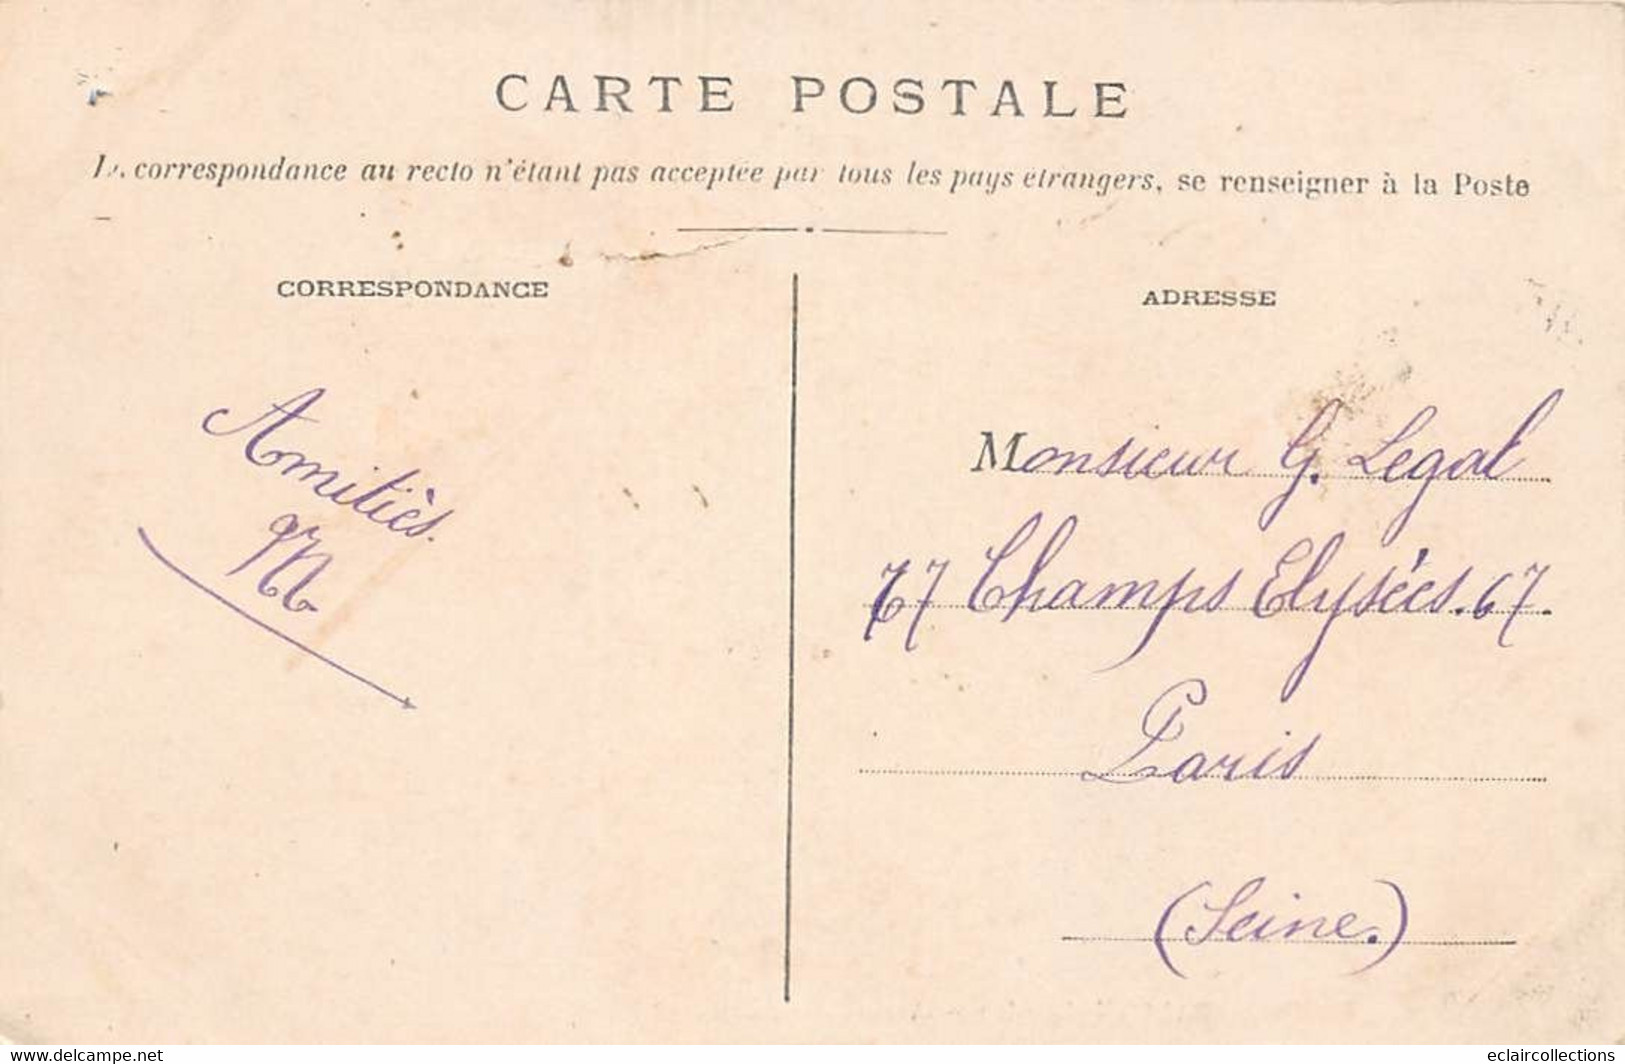 CARTE POSTALE
La correspondance au recto n'étant pas acceptée par tous les pays étrangers, se renseigner à la Poste
CORRESPONDANCE
ADRESSE
Amitiès.
Monsieur G. Legal
67 Champs Elysées. 67.
Paris
(Seine.)
www.delcampe.net
eclaircollections